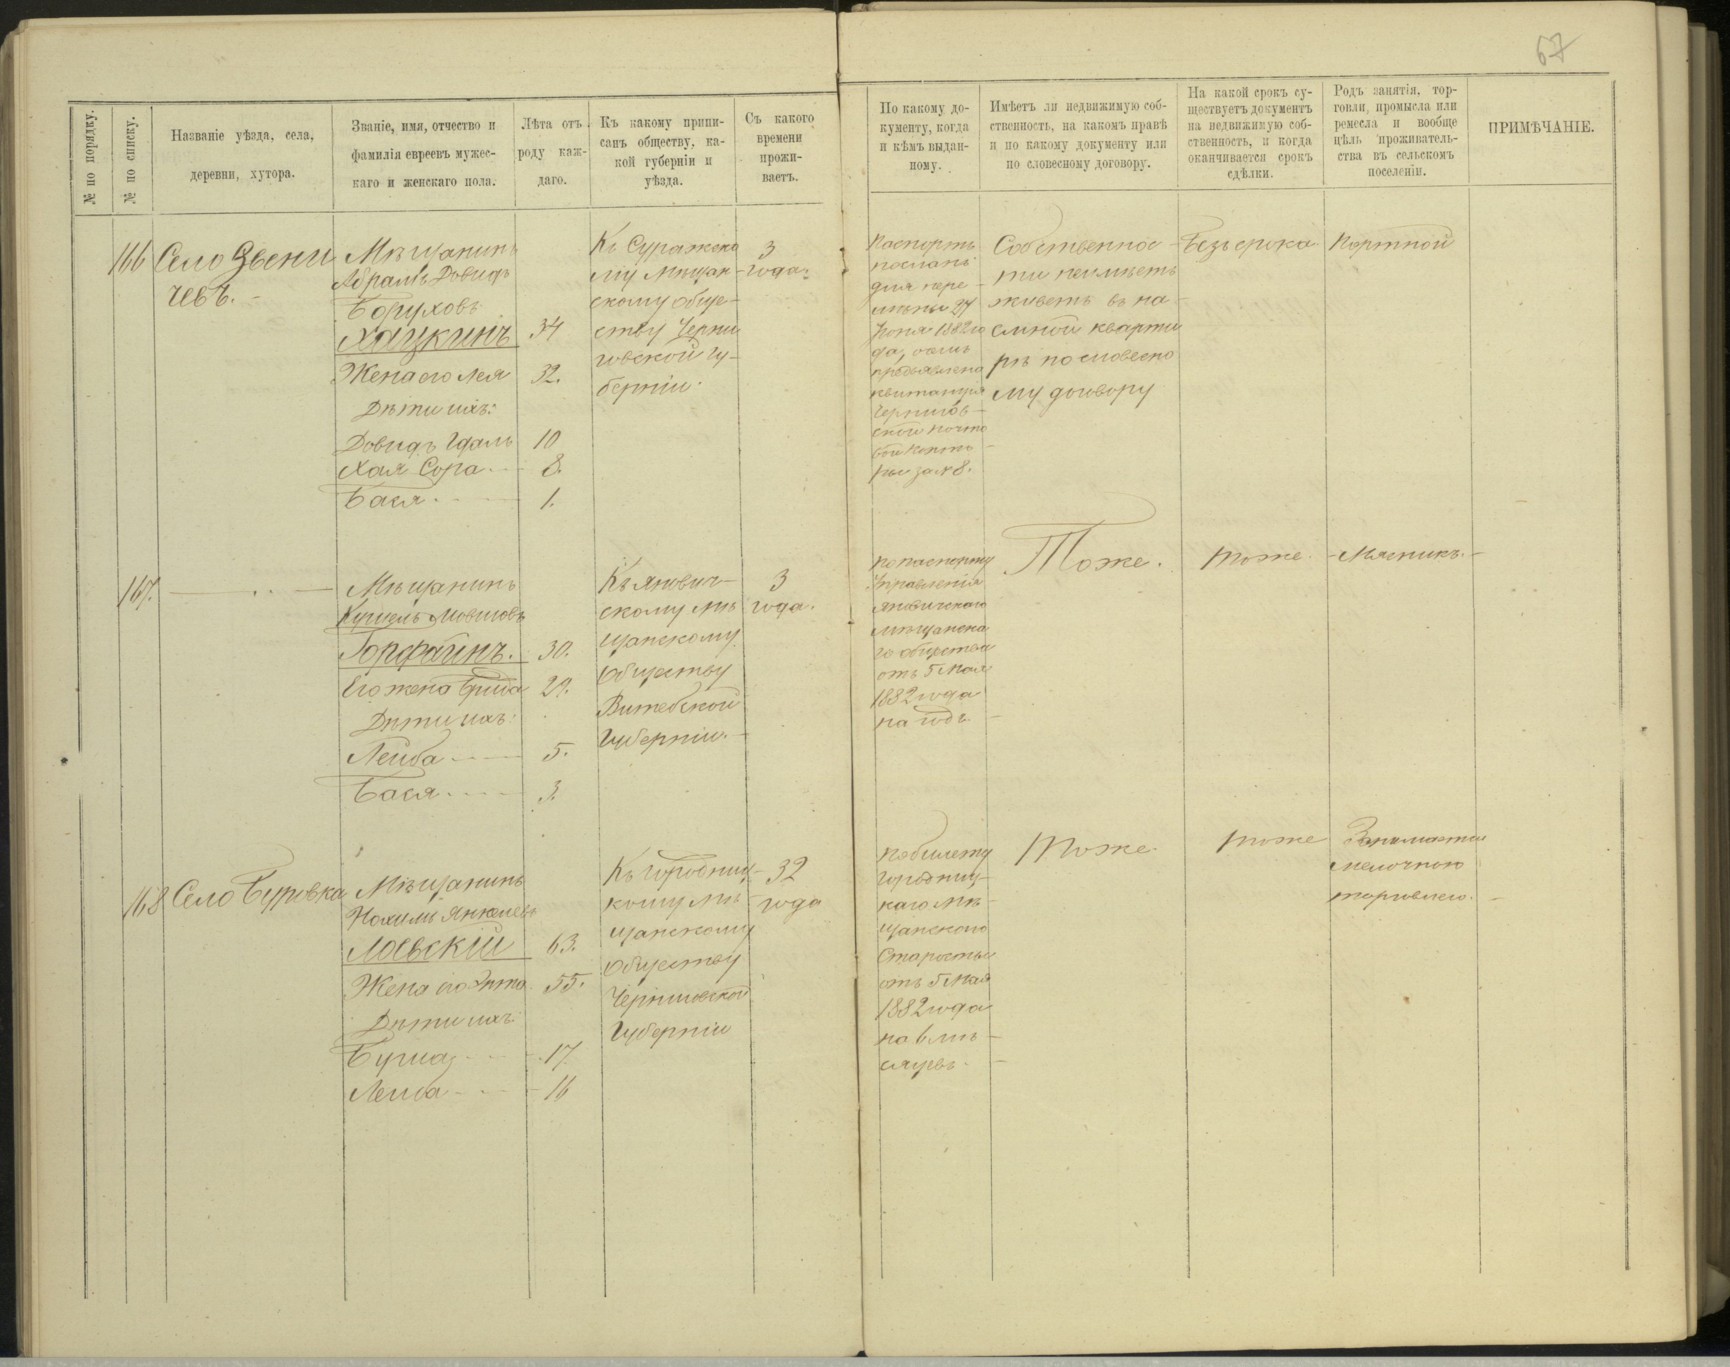 67
№ по порядку.
№ по списку.
Названіе уѣзда, села,
деревни, хутора.
Званіе, имя, отчество и
фамилія евреевъ мужес-
каго и женскаго пола.
Лѣта отъ
роду каж-
даго.
Къ какому припи-
санъ обществу, ка-
кой губерніи и
уѣзда.
Съ какого
времени
прожи-
ваетъ.
По какому до-
кументу, когда
и кѣмъ выдан-
ному.
Имѣетъ ли недвижимую соб-
ственность, на какомъ правѣ
и по какому документу или
по словесному договору.
На какой срокъ су-
ществуетъ документъ
на недвижимую соб-
ственность, и когда
оканчивается срокъ
сдѣлки.
Родъ занятія, тор-
говли, промысла или
ремесла и вообще
цѣль проживатель-
ства въ сельскомъ
поселеніи.
ПРИМѢЧАНІЕ.
166
Село Звени
чевъ.
Мѣщанинъ
Абрамъ Довидъ
Боруховъ
Хацкинъ 34
Жена его Лея 32.
Дѣти ихъ:
Довидъ 10
Хая Сора 8.
Бася 1.
Къ Суражско
му Мѣщан-
скому обще-
ству Черни
говской гу-
берніи.
3
года
Паспортъ
посланъ
для пере-
мѣны 27
1882 го
да,
предъявлена
квитанція
Чернигов-
ской почто
вой конто
ры за № 8.
Собственнос-
ти неимѣетъ
живетъ въ на
емной кварти
рѣ по словесно
му договору
Безъ срока
Портной
167.
Мѣщанинъ
Мовшовъ
Горфаинъ. 30.
Его жена 29.
Дѣти ихъ:
Лейба 5.
Бася 3.
Къ Янович-
скому мѣ
щанскому
обществу
Витебской
Губерніи.
3
года.
По паспорту
Управленія
Яновичскаго
мѣщанска
го общества
отъ 5 Мая
1882 года
на годъ
Тоже.
тоже.
Мясникъ.
168
Село Буровка
Мѣщанинъ
Нохимъ Янкелевъ
Лаевскій 63.
Жена его 55.
Дѣти ихъ:
17.
Лейба 16
Къ Городниц-
кому мѣ-
щанскому
обществу
Черниговской
Губерніи
32
года
По билету
Городниц-
каго мѣ-
щанского
Старосты
отъ 5 Мая
1882 года
на 6 мѣ-
сяцевъ.
Тоже.
тоже
Занимается
мелочною
торговлею.